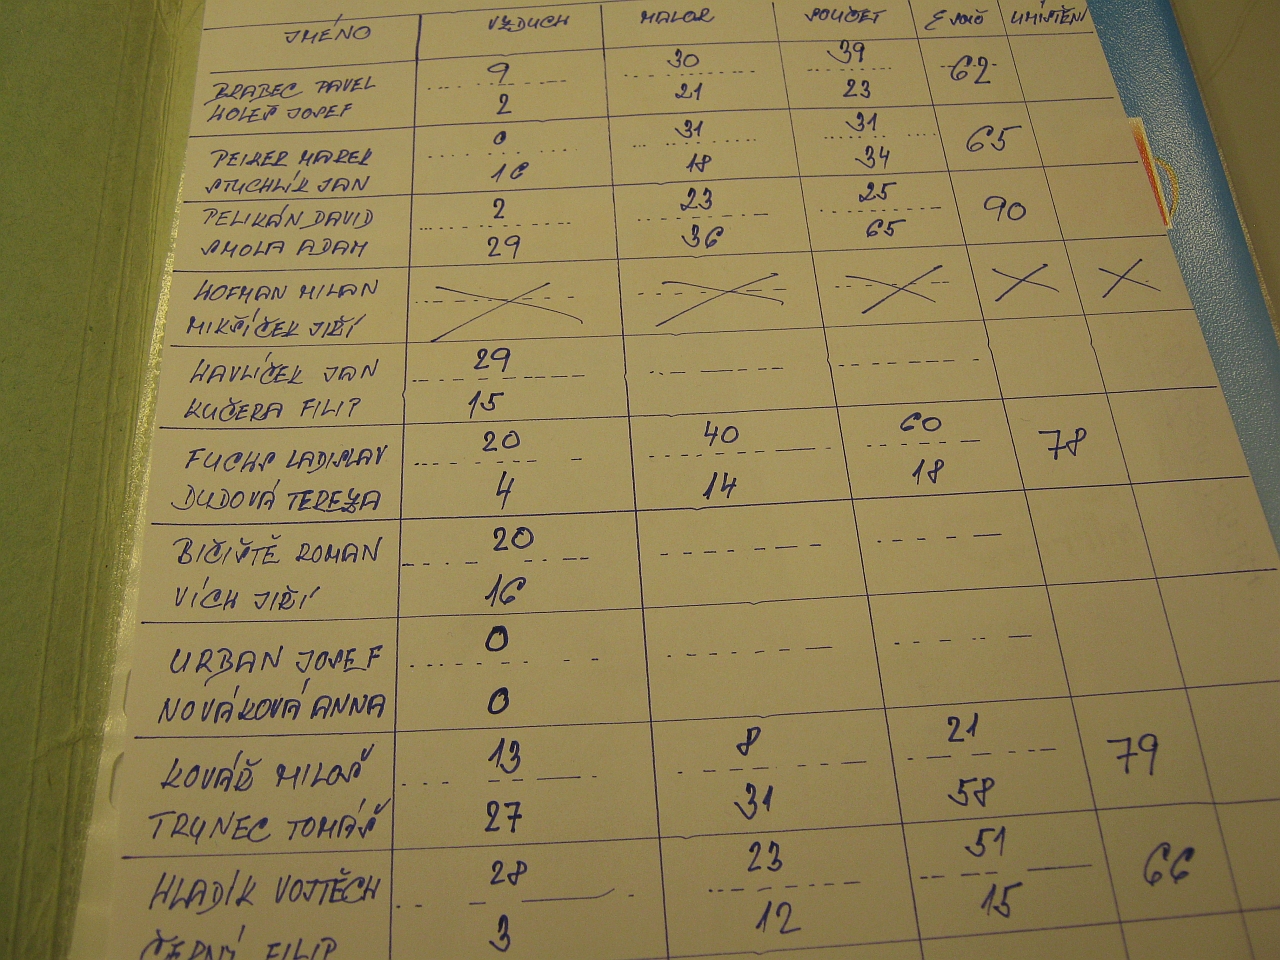 JMÉNO VZDUCH MALOR SOUČET UMÍSTĚNÍ
BRABEC PAVEL 9 30 39 62
HOLEŠ JOSEF 2 21 23
PEIKER MAREK 0 31 31 65
STUCHLÍK JAN 16 18 34
PELIKÁN DAVID 2 23 25 90
SMOLA ADAM 29 36 65
HOFMAN MILAN
MIKŠÍČEK JIŘÍ
HAVLÍČEK JAN 29
KUČERA FILIP 15
FUCHS LADISLAV 20 40 60 78
DUDOVÁ TEREZA 4 14 18
BIČIŠTĚ ROMAN 20
VÍCH JIŘÍ 16
URBAN JOSEF 0
NOVÁKOVÁ ANNA 0
KOVÁŘ MILOŠ 13 8 21 79
TRYNEC TOMÁŠ 27 31 58
HLADÍK VOJTĚCH 28 23 51 66
ČERNÝ FILIP 3 12 15